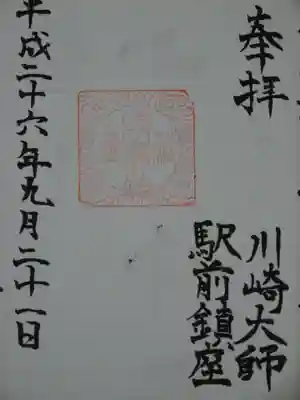 奉拝
川崎大師
駅前鎮座
平成二十六年九月二十一日